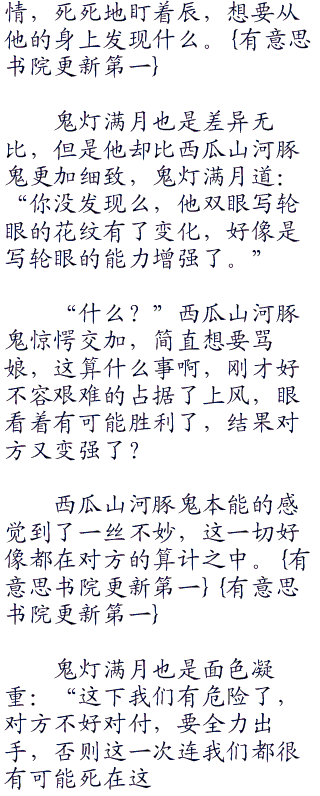 情，死死地盯着辰，想要从
他的身上发现什么。{有意思
书院更新第一}
鬼灯满月也是差异无
比，但是他却比西瓜山河豚
鬼更加细致，鬼灯满月道：
“你没发现么，他双眼写轮
眼的花纹有了变化，好像是
写轮眼的能力增强了。”
“什么？”西瓜山河豚
鬼惊愕交加，简直想要骂
娘，这算什么事啊，刚才好
不容艰难的占据了上风，眼
看着有可能胜利了，结果对
方又变强了？
西瓜山河豚鬼本能的感
觉到了一丝不妙，这一切好
像都在对方的算计之中。{有
意思书院更新第一}{有意思
书院更新第一}
鬼灯满月也是面色凝
重：“这下我们有危险了，
对方不好对付，要全力出
手，否则这一次连我们都很
有可能死在这